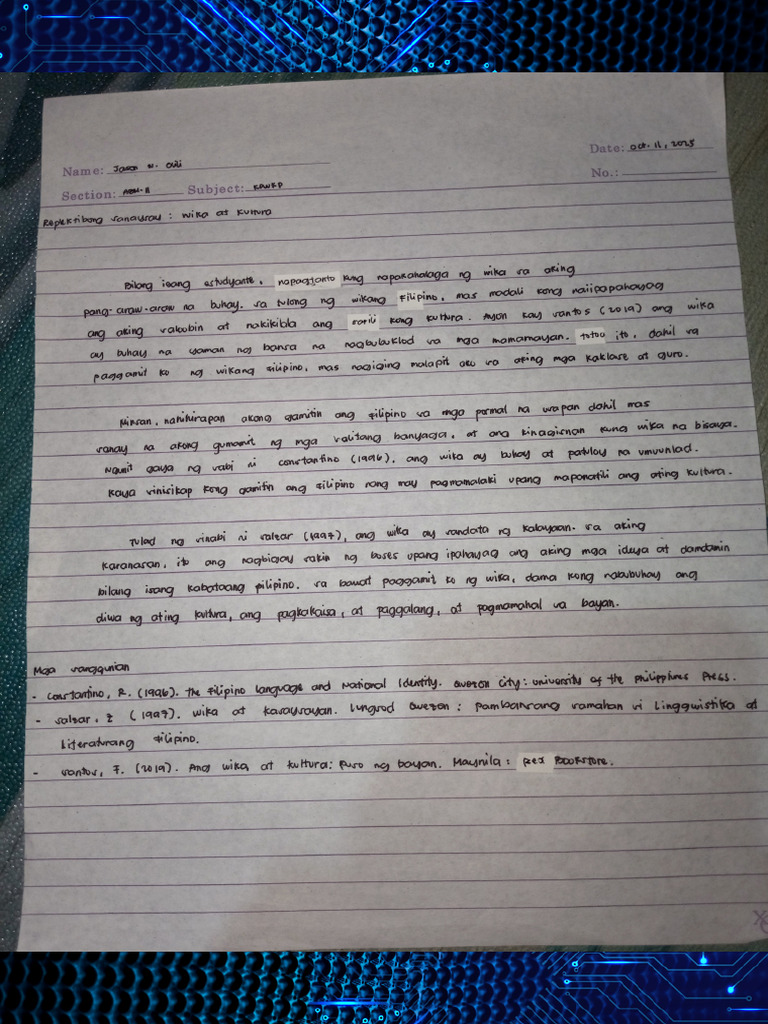 Name: Jason M. Oări
Date: Oct. 11, 2025
Section: ABM-11 Subject: KPWKP
No.:
Replektibong Sanaysay: Wika at Kultura
Bilang isang estudyante, napagtanto kung napakahalaga ng wika sa aking
pang-araw-araw na buhay. Sa tulong ng wikang Filipino, mas madali kong naiipapahayag
ang aking saloobin at nakikibla ang sarili kong kultura. Ayon kay Santos (2019) ang wika
ay buhay na yaman ng bansa na nagbubuklod sa mga mamamayan. Totoo ito, dahil sa
paggamit ko ng wikang Filipino, mas nagiging malapit ako sa aking mga kaklase at guro.
Minsan, nahihirapan akong gamitin ang Filipino sa mga pormal na usapan dahil mas
sanay na akong gumamit ng mga salitang banyaga, at ang kinagisnan kung wika na bisaya.
Ngunit gaya ng sabi ni Constantino (1996), ang wika ay buhay at patuloy na umuunlad.
Kaya sinisikap kong gamitin ang Filipino nang may pagmamalaki upang mapanatili ang ating kultura.
Tulad ng sinabi ni Salzar (1997), ang wika ay sandata ng kalayaan. Sa aking
karanasan, ito ang nagbigay sakin ng boses upang ipahayag ang aking mga ideya at damdamin
bilang isang kabataang pilipino. Sa bawat paggamit ko ng wika, dama kong nabubuhay ang
diwa ng ating kultura, ang pagkakaisa, at paggalang, at pagmamahal sa bayan.
Mga sanggunian
- Constantino, R. (1996). The Filipino Language and National Identity. Quezon City: University of the Philippines Press.
- Salzar, Z (1997). Wika at Kasaysayan. Lungsod Quezon: Pambansang samahan si Linggwistika at
Literaturang Filipino.
- Santos, F. (2019). Ang wika at kultura: Puso ng bayan. Maynila: Rex Bookstore.